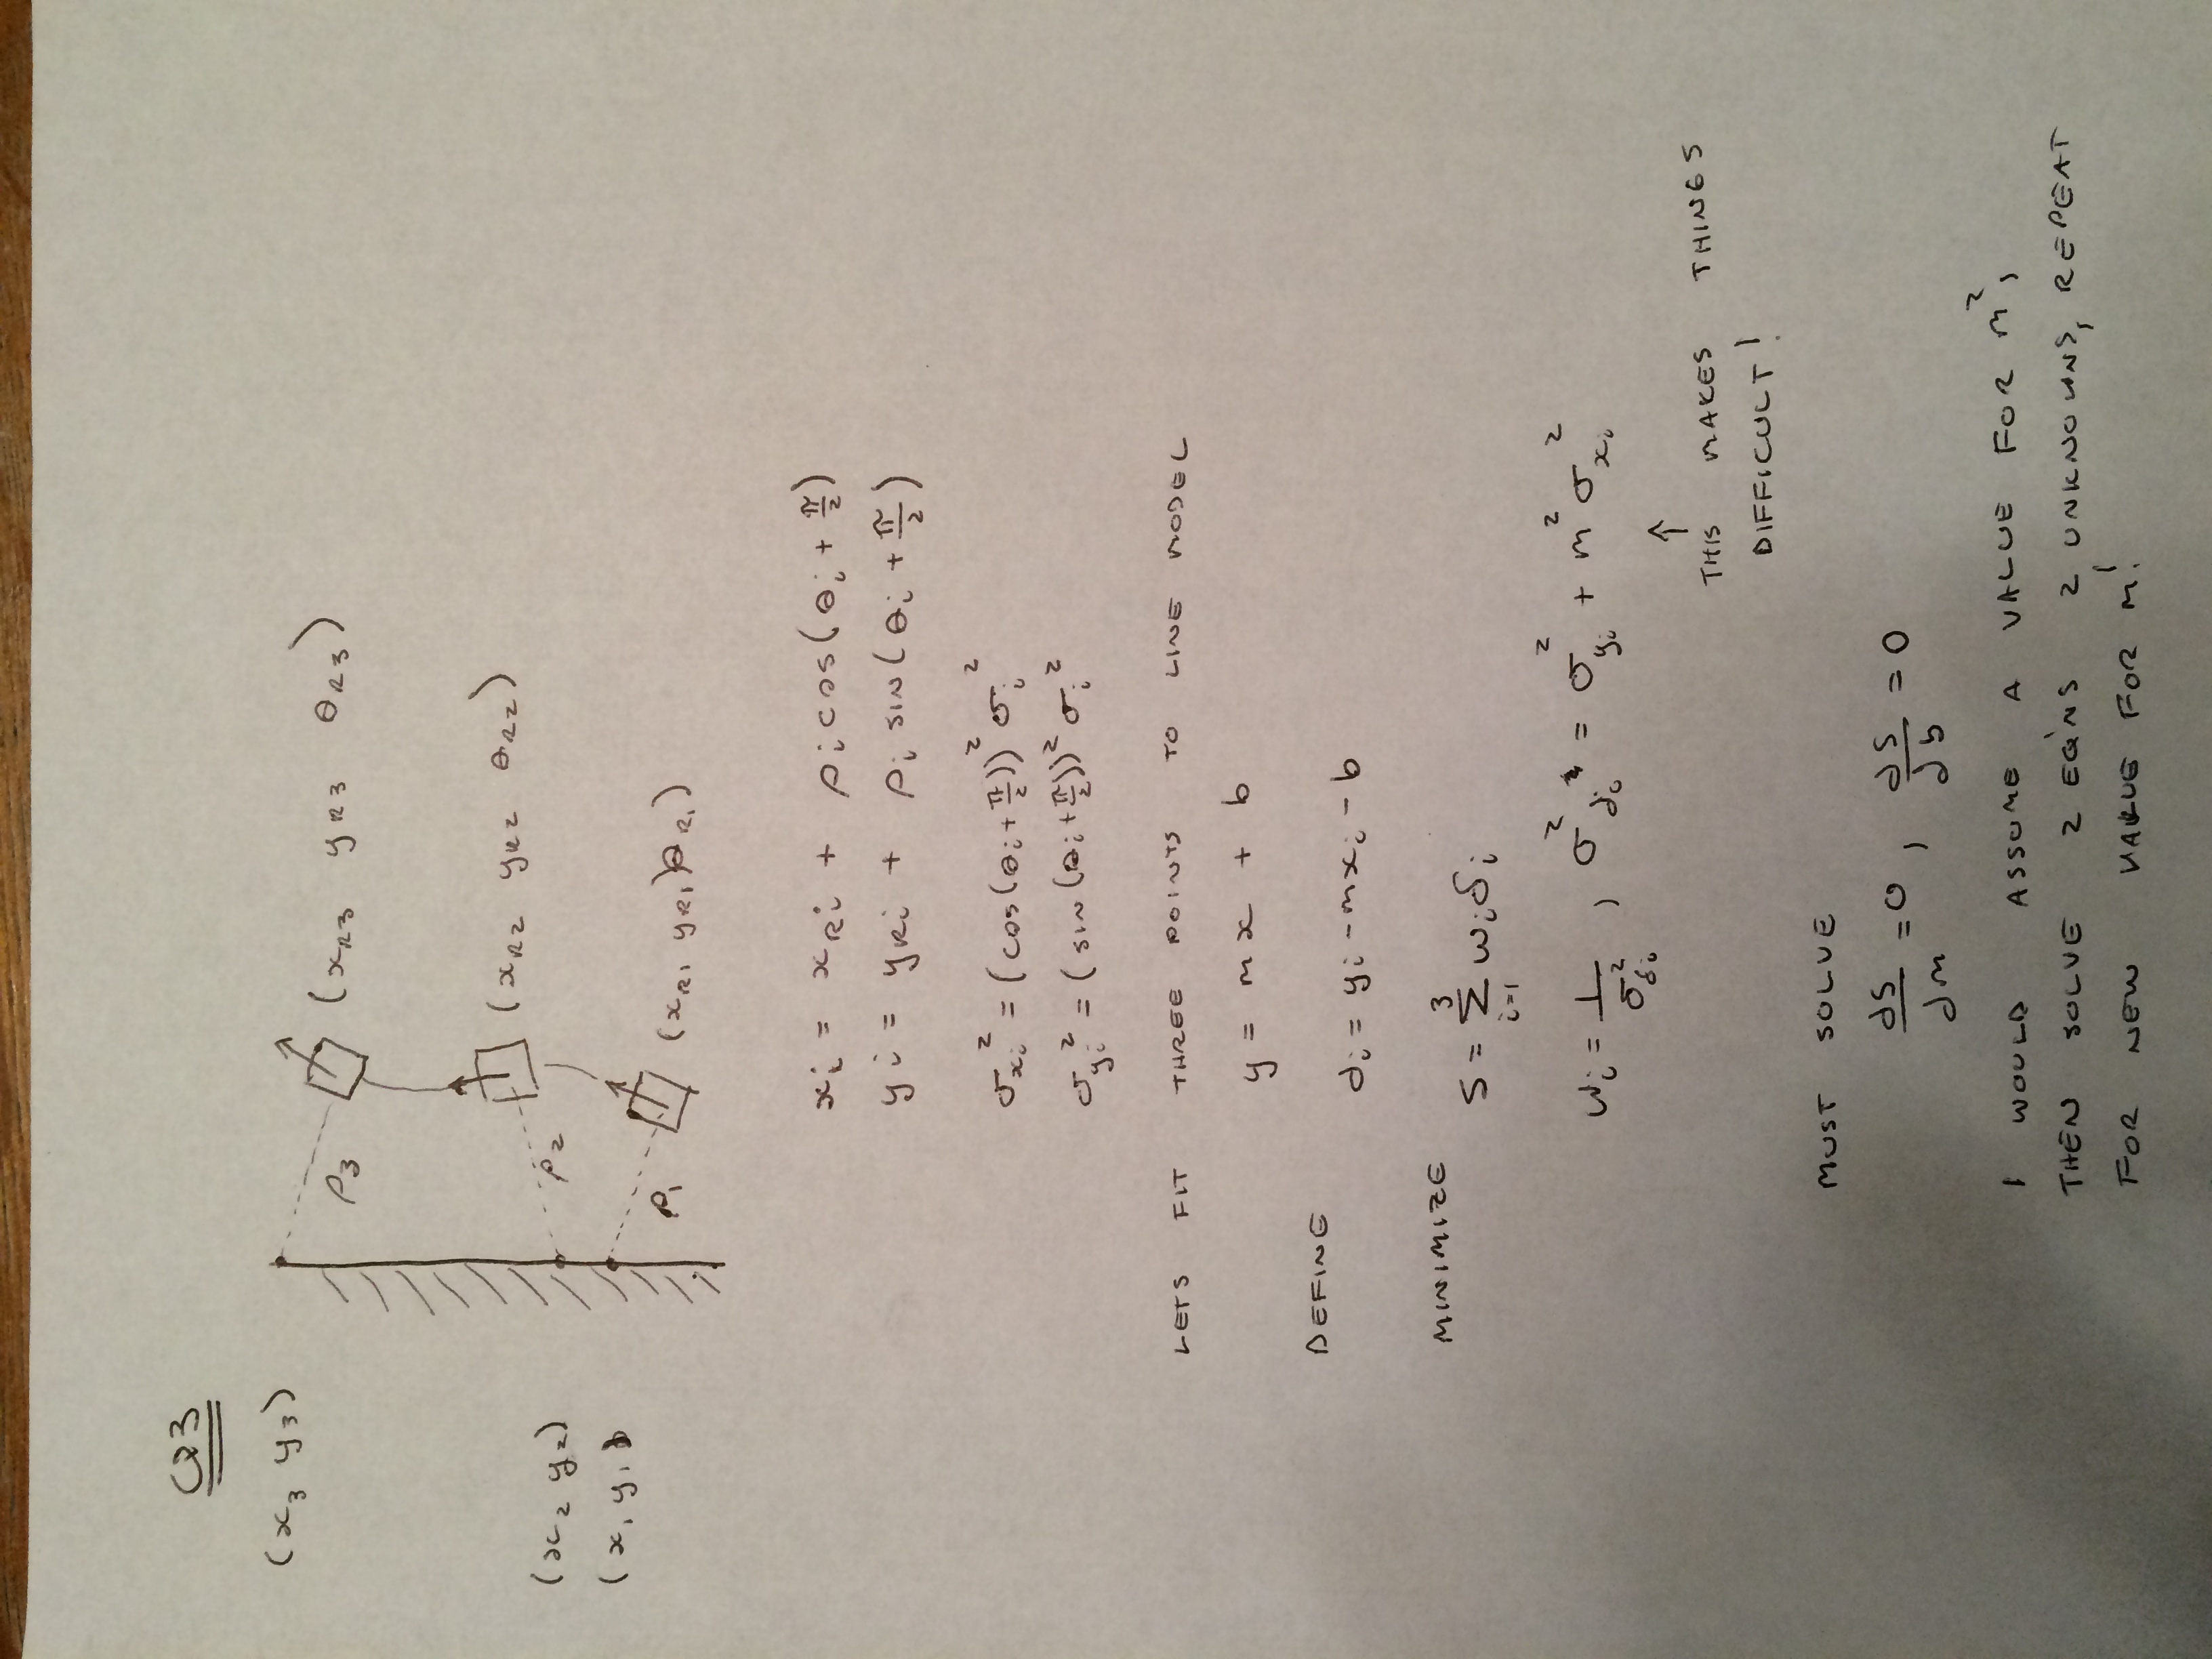 Q3
(x₃ y₃)
(x_R3 y_R3 θ_R3)
ρ₃
(x_R2 y_R2 θ_R2)
(x₂ y₂)
ρ₂
(x₁ y₁)
ρ₁
(x_R1 y_R1 θ_R1)
xᵢ = x_Ri + ρᵢ cos(θᵢ + π/2)
yᵢ = y_Ri + ρᵢ sin(θᵢ + π/2)
σ_xᵢ² = (cos(θᵢ + π/2))² σᵢ²
σ_yᵢ² = (sin(θᵢ + π/2))² σᵢ²
LETS FIT THREE POINTS TO LINE MODEL
y = mx + b
DEFINE
dᵢ = yᵢ - mxᵢ - b
MINIMIZE
S = Σ_{i=1}^{3} wᵢ δᵢ
wᵢ = 1/σ_δᵢ² , σ²_dᵢ = σ_yᵢ² + m² σ_xᵢ²
↑
THIS MAKES THINGS
DIFFICULT!
MUST SOLVE
dS/dm = 0 , dS/db = 0
I WOULD ASSUME A VALUE FOR m²,
THEN SOLVE 2 EQ'NS 2 UNKNOWNS, REPEAT
FOR NEW VALUE FOR m!